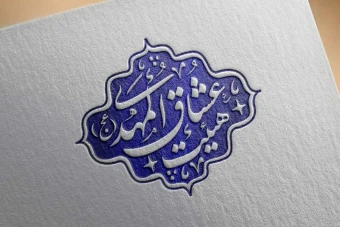 هیئت عشاق المهدی عج